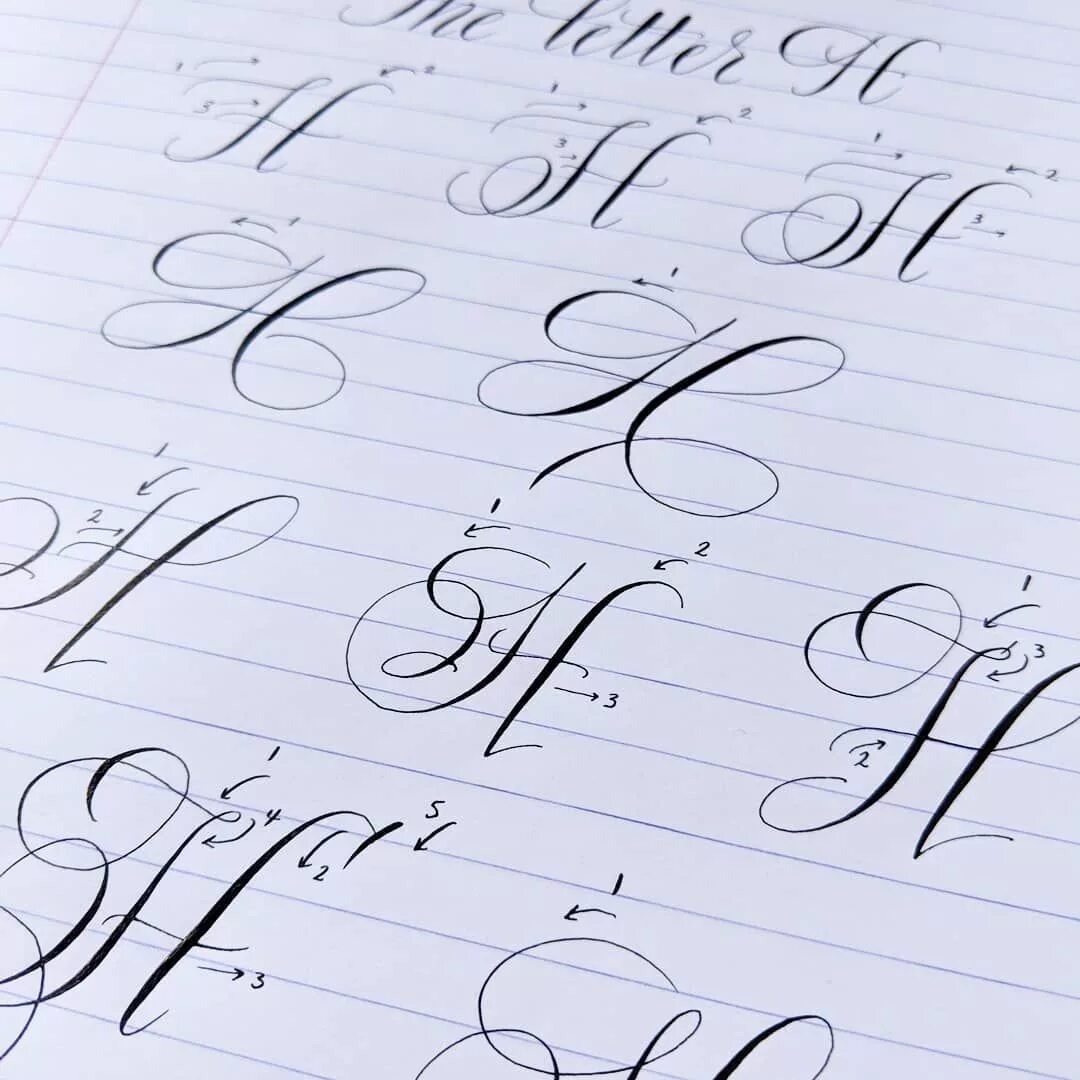 The letter H
1 2 3 H 1 2 3 H 1 2 3 H
1 H 1 H
1 2 H 1 2 3 H 1 2 3 H
1 2 3 4 5 H 1 H